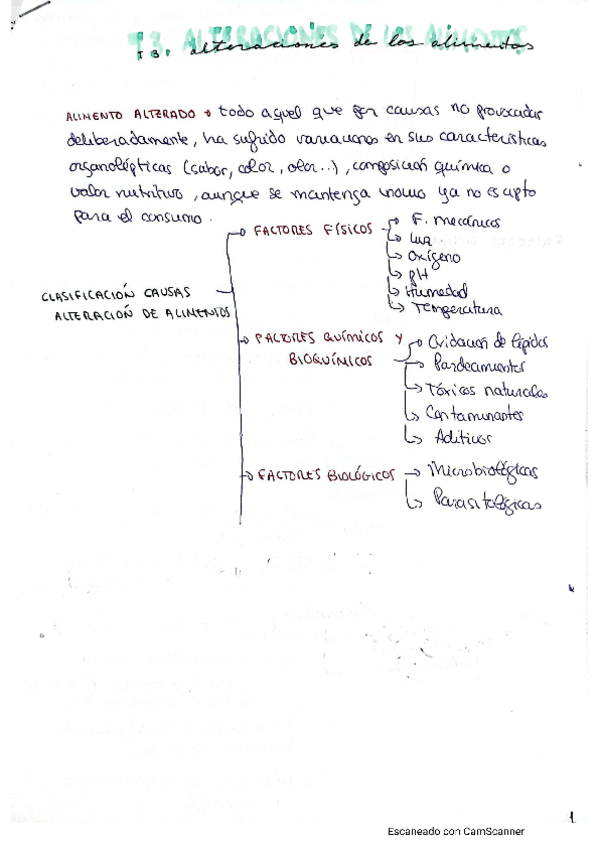 T3. ALTERACIONES DE LOS ALIMENTOS
T3. alteraciones de los alimentos
ALIMENTO ALTERADO → todo aquel que por causas no provocadas
deliberadamente, ha sufrido variaciones en sus características
organolépticas (sabor, color, olor...), composición química o
valor nutritivo, aunque se mantenga inocuo ya no es apto
para el consumo.
CLASIFICACIÓN CAUSAS
ALTERACIÓN DE ALIMENTOS
→ FACTORES FÍSICOS
→ F. mecánicos
→ Luz
→ Oxígeno
→ pH
→ Humedad
→ Temperatura
→ FACTORES QUÍMICOS Y
BIOQUÍMICOS
→ Oxidación de lípidos
→ Pardeamientos
→ Tóxicos naturales
→ Contaminantes
→ Aditivos
→ FACTORES BIOLÓGICOS
→ Microbiológicas
→ Parasitológicas
1
Escaneado con CamScanner